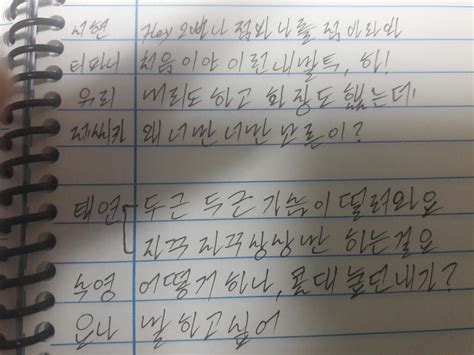 서현 Hey 오빠 나 좀봐 나를 좀 바라봐
티파니 처음이야 이런 내말투, 하!
우리 머리도 하고 화장도 했는데
제시카 왜 너만 너만 모른이?
태연 두근 두근 가슴이 떨려와요
자꾸 자꾸 상상만 하는걸요
수영 어떻거 하나, 콜대 높던 내가?
윤나 말 하고 싶어